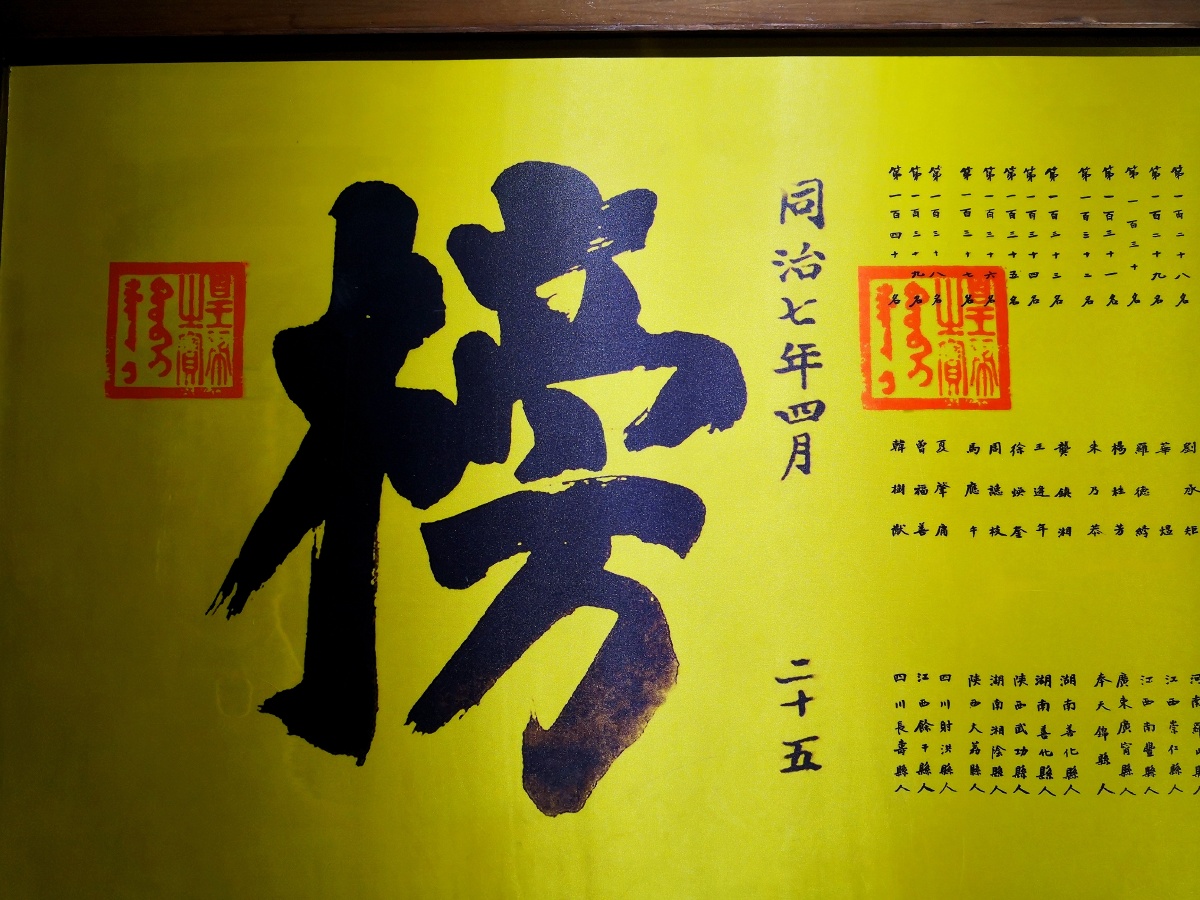 第一百二十八名 劉永矩
第一百二十九名 華煜 江西崇仁縣人
第一百三十名 羅德綺 江西南豐縣人
第一百三十一名 楊桂芳 廣東廣甯縣人
第一百三十二名 朱乃恭 奉天錦縣人
第一百三十三名 龔鎮湘 湖南善化縣人
第一百三十四名 王逢年 湖南善化縣人
第一百三十五名 徐煥奎 陝西武功縣人
第一百三十六名 周誌枝 湖南湘陰縣人
第一百三十七名 馬應午 陝西大荔縣人
第一百三十八名 夏肇庸 四川射洪縣人
第一百三十九名 曾福善 江西餘干縣人
第一百四十名 韓樹猷 四川長壽縣人
皇帝
之寶
同治七年四月 二十五
榜
皇帝
之寶